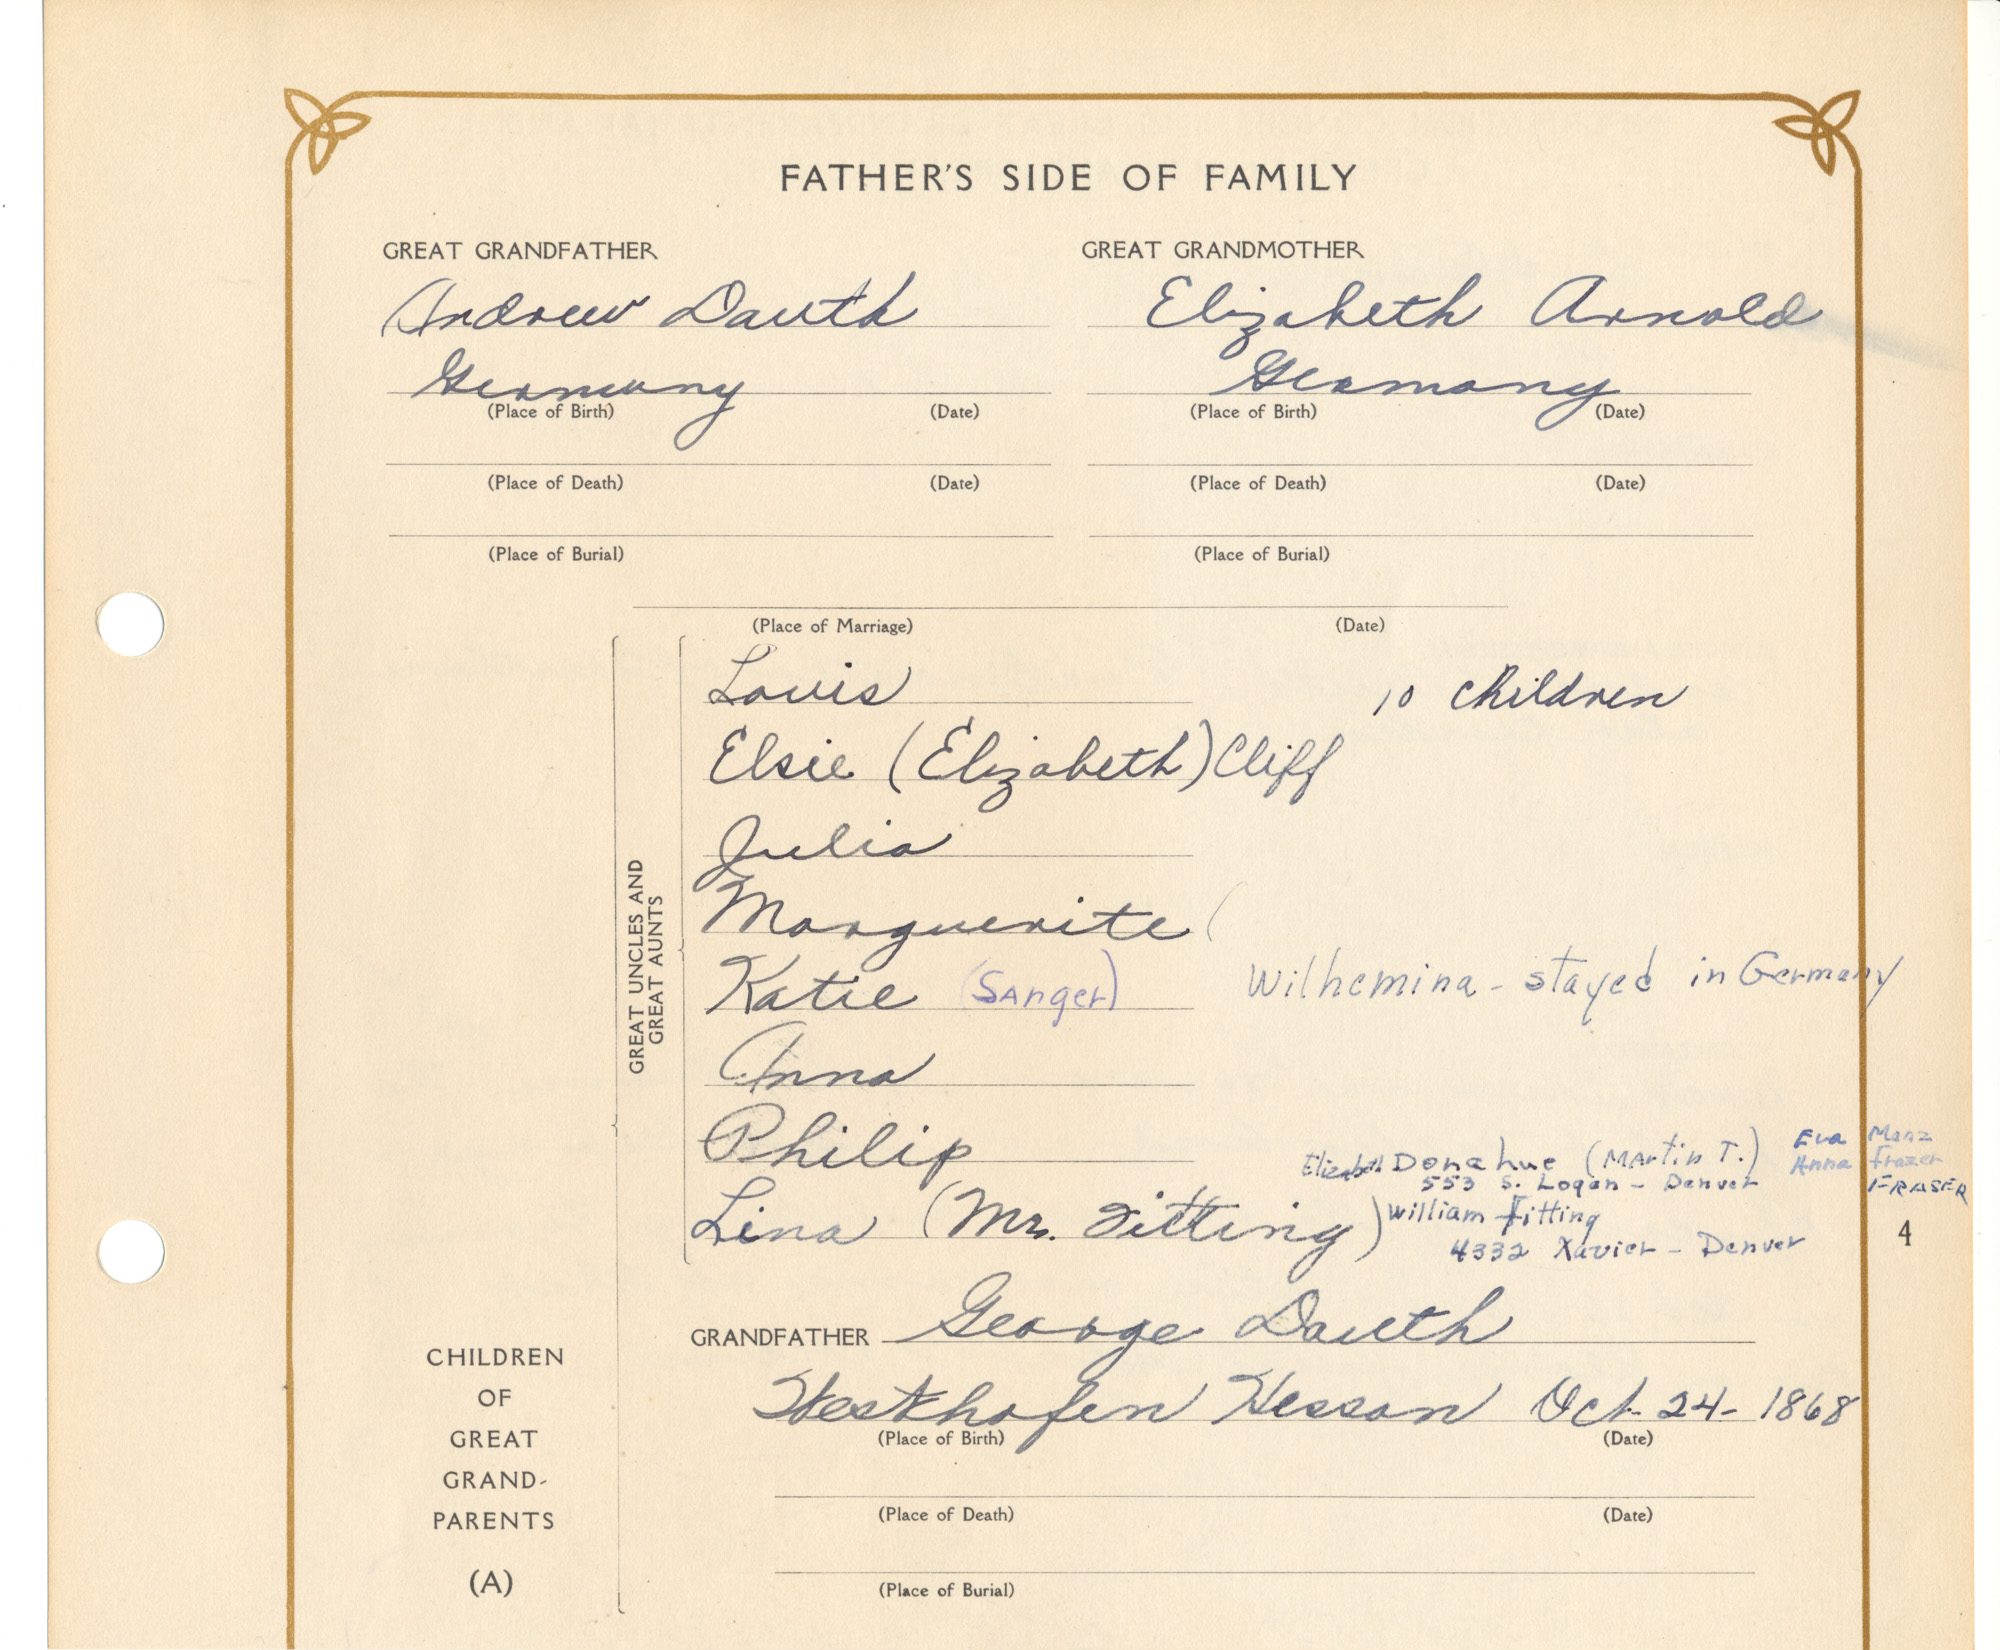 FATHER'S SIDE OF FAMILY
GREAT GRANDFATHER GREAT GRANDMOTHER
Andrew Dauth Elizabeth Arnold
Germany Germany
(Place of Birth) (Date) (Place of Birth) (Date)
(Place of Death) (Date) (Place of Death) (Date)
(Place of Burial) (Place of Burial)
(Place of Marriage) (Date)
GREAT UNCLES AND
GREAT AUNTS
Louis 10 children
Elsie (Elizabeth) Cliff
Julia
Marguerite (
Katie (Sanger) Wilhemina - stayed in Germany
Anna
Philip
Elizabeth Donahue (Martin T.) Eva Manz
553 S. Logan - Denver Anna Frazer
FRASER
Lina (Mr. Fitting) William Fitting
4332 Xavier - Denver
4
GRANDFATHER George Dauth
Westhofen Hesson Oct. 24 - 1868
(Place of Birth) (Date)
(Place of Death) (Date)
(Place of Burial)
CHILDREN
OF
GREAT
GRAND-
PARENTS
(A)